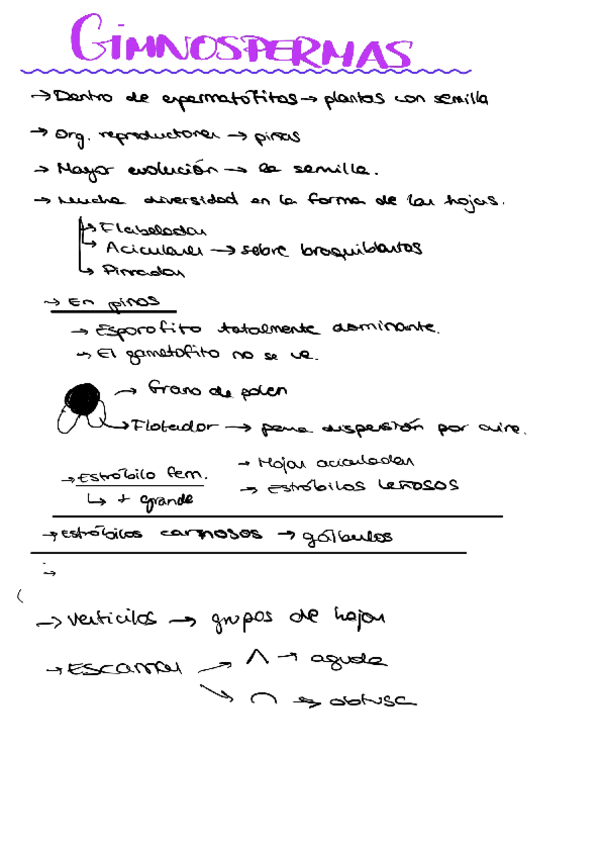 GIMNOSPERMAS
→ Dentro de espermatofitas → plantas con semilla
→ Org. reproductores → piñas
→ Mayor evolución → la semilla.
→ Mucha diversidad en la forma de las hojas.
↳ Flabeladas
↳ Aciculares → sobre braquiblastos
↳ Pinnadas
→ En pinos
→ Esporofito totalmente dominante.
→ El gametofito no se ve.
→ Grano de polen
→ Flotador → para dispersión por aire.
→ Estróbilo fem.
↳ + grande
→ Hojas aciculadas
→ Estróbilos leñosos
→ Estróbilos carnosos → gálbulos
→
→ Verticilos → grupos de hojas
→ Escamas → ∧ → aguda
→ ∩ → obtusa